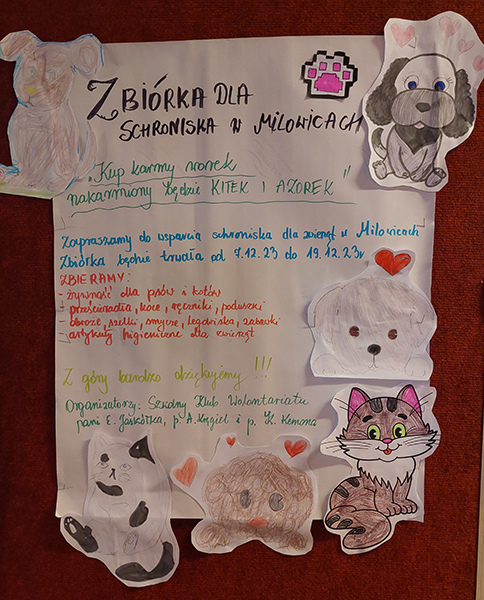 ZBIÓRKA DLA
SCHRONISKA W MILOWICACH
„Kup karmy worek
nakarmiony będzie KITEK I AZOREK"
Zapraszamy do wsparcia schroniska dla zwierząt w Milowicach
Zbiórka będzie trwała od 7.12.23 do 19.12.23r
ZBIERAMY:
- żywność dla psów i kotów
- prześcieradła, koce, ręczniki, poduszki
- obroże, szelki, smycze, legowiska, zabawki
- artykuły higieniczne dla zwierząt
Z góry bardzo dziękujemy !!!
Organizatorzy: Szkolny Klub Wolontariatu
pani E. Jaskółka, p. A. Kręgiel i p. K. Kemona